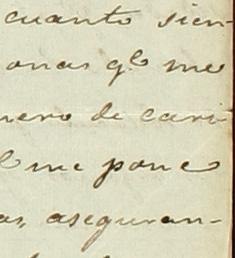 cuanto sien-
onas qe me
nero de cari
me pone
as, aseguran-